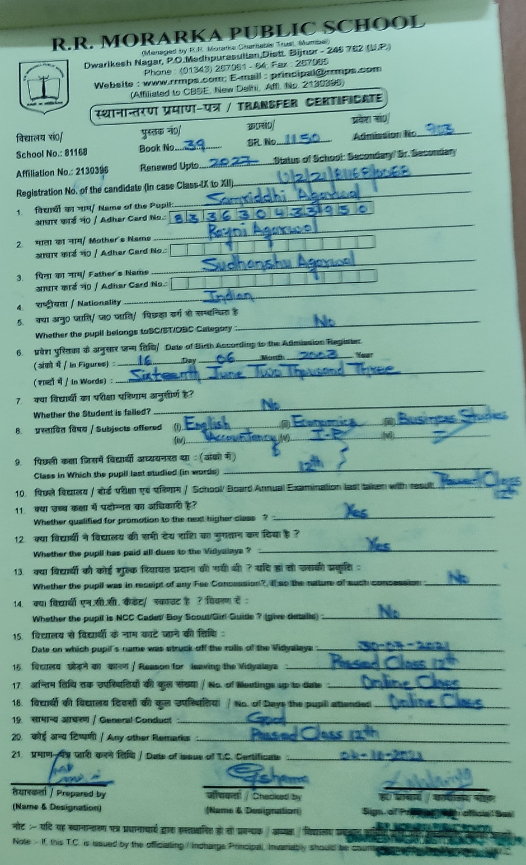 R.R. MORARKA PUBLIC SCHOOL
(Managed by R.R. Morarka Charitable Trust, Mumbai)
Dwarikesh Nagar, P.O. Medhpurasultan, Distt. Bijnor - 246 762 (U.P.)
Phone : (01343) 267061 - 64, Fax : 267065
Website : www.rrmps.com; E-mail : principal@rrmps.com
(Affiliated to CBSE, New Delhi, Affi. No. 2130396)
स्थानान्तरण प्रमाण-पत्र / TRANSFER CERTIFICATE
विद्यालय सं०/ पुस्तक सं०/ क्र०सं०/ प्रवेश सं०/
School No.: 81168 Book No. 39 SR. No. 1150 Admission No. 903
Affiliation No.: 2130396 Renewed Upto 2027 Status of School: Secondary/ Sr. Secondary
Registration No. of the candidate (in case Class-IX to XII)
1. विद्यार्थी का नाम/ Name of the Pupil: Samriddhi Agarwal
आधार कार्ड नं0 / Adhar Card No.: 833630433950
2. माता का नाम/ Mother's Name Rajni Agarwal
आधार कार्ड नं0 / Adhar Card No.:
3. पिता का नाम/ Father's Name Sudhanshu Agarwal
आधार कार्ड नं0 / Adhar Card No.:
4. राष्ट्रीयता / Nationality Indian
5. क्या अनु0 जाति/ ज0 जाति/ पिछड़ा वर्ग से सम्बन्धित है
Whether the pupil belongs toSC/ST/OBC Category : No
6. प्रवेश पुस्तिका के अनुसार जन्म तिथि/ Date of Birth According to the Admission Register.
(अंकों में / In Figures) 16 Day 06 Month 2003 Year
(शब्दों में / In Words) : Sixteenth June Two Thousand Three
7. क्या विद्यार्थी का परीक्षा परिणाम अनुत्तीर्ण है?
Whether the Student is failed? No
8. प्रस्तावित विषय / Subjects offered (i) English (ii) Economics (iii) Business Studies
(iv) Accountancy (v) I.P. (vi)
9. पिछली कक्षा जिसमें विद्यार्थी अध्ययनरत था : (अंकों में)
Class in Which the pupil last studied (in words) 12th
10. पिछले विद्यालय / बोर्ड परीक्षा एवं परिणाम / School/ Board Annual Examination last taken with result Passed Class 12th
11. क्या उच्च कक्षा में पदोन्नत का अधिकारी है?
Whether qualified for promotion to the next higher class ? : Yes
12. क्या विद्यार्थी ने विद्यालय की सभी देय राशि का भुगतान कर दिया है ?
Whether the pupil has paid all dues to the Vidyalaya ? : Yes
13. क्या विद्यार्थी को कोई शुल्क रियायत प्रदान की गयी थी ? यदि हां तो उसकी प्रकृति :
Whether the pupil was in receipt of any Fee Concession?, if so the nature of such concession : No
14. क्या विद्यार्थी एन.सी.सी. कैडेट/ स्काउट है ? विवरण दें :
Whether the pupil is NCC Cadet/ Boy Scout/Girl Guide ? (give details) : No
15. विद्यालय से विद्यार्थी के नाम काटे जाने की तिथि :
Date on which pupil's name was struck off the rolls of the Vidyalaya : 30-07-2021
16. विद्यालय छोड़ने का कारण / Reason for leaving the Vidyalaya Passed Class 12th
17. अन्तिम तिथि तक उपस्थितियों की कुल संख्या / No. of Meetings up to date : Online Class
18. विद्यार्थी की विद्यालय दिवसों की कुल उपस्थितियां / No. of Days the pupil attended Online Class
19. सामान्य आचरण / General Conduct : Good
20. कोई अन्य टिप्पणी / Any other Remarks : Passed Class 12th
21. प्रमाण-पत्र जारी करने तिथि / Date of issue of T.C. Certificate 04-10-2021
तैयारकर्ता / Prepared by जांचकर्ता / Checked by
(Name & Designation) (Name & Designation)
Note :- If, this T.C. is issued by the officiating / Incharge Principal, Invariably should be